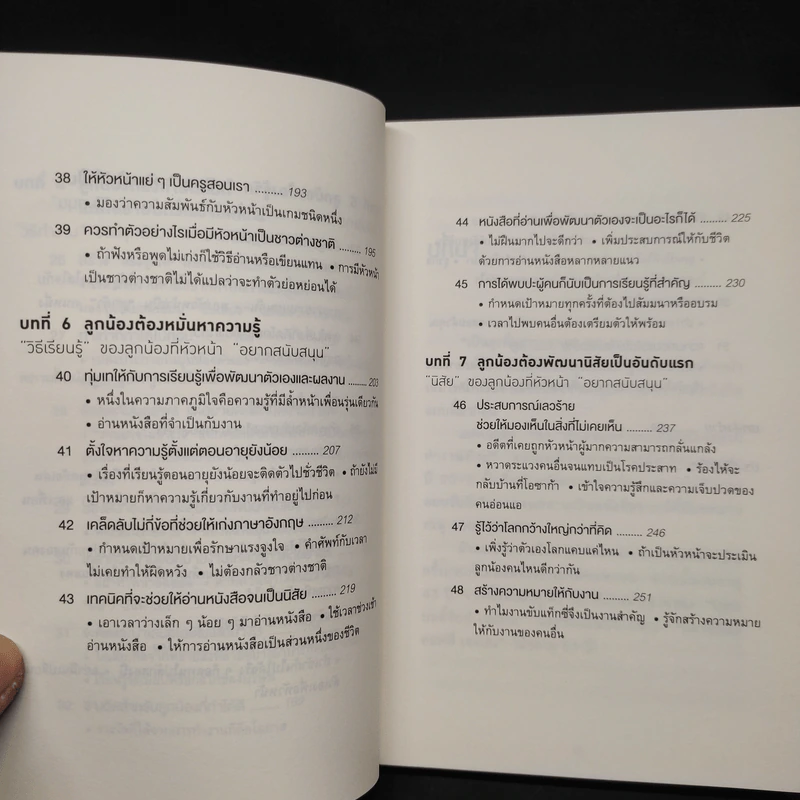 38 ให้หัวหน้าแย่ ๆ เป็นครูสอนเรา ......... 193
• มองว่าความสัมพันธ์กับหัวหน้าเป็นเกมชนิดหนึ่ง
39 ควรทำตัวอย่างไรเมื่อมีหัวหน้าเป็นชาวต่างชาติ ......... 196
• ถ้าฟังหรือพูดไม่เก่งก็ใช้วิธีอ่านหรือเขียนแทน • การมีหัวหน้า
เป็นชาวต่างชาติไม่ได้แปลว่าจะทำตัวย่อหย่อนได้
บทที่ 6 ลูกน้องต้องหมั่นหาความรู้
"วิธีเรียนรู้" ของลูกน้องที่หัวหน้า "อยากสนับสนุน"
40 ทุ่มเทให้กับการเรียนรู้เพื่อพัฒนาตัวเองและผลงาน ......... 203
• หนึ่งในความภาคภูมิใจคือความรู้ที่มีล้ำหน้าเพื่อนรุ่นเดียวกัน
• อ่านหนังสือที่จำเป็นกับงาน
41 ตั้งใจหาความรู้ตั้งแต่ตอนอายุยังน้อย ......... 207
• เรื่องที่เรียนรู้ตอนอายุยังน้อยจะติดตัวไปชั่วชีวิต • ถ้ายังไม่มี
เป้าหมายก็หาความรู้เกี่ยวกับงานที่ทำอยู่ไปก่อน
42 เคล็ดลับไม่กี่ข้อที่ช่วยให้เก่งภาษาอังกฤษ ......... 212
• กำหนดเป้าหมายเพื่อรักษาแรงจูงใจ • คำศัพท์กับเวลา
ไม่เคยทำให้ผิดหวัง • ไม่ต้องกลัวชาวต่างชาติ
43 เทคนิคที่จะช่วยให้อ่านหนังสือจนเป็นนิสัย ......... 219
• เอาเวลาว่างเล็ก ๆ น้อย ๆ มาอ่านหนังสือ • ใช้เวลาช่วงเช้า
อ่านหนังสือ • ให้การอ่านหนังสือเป็นส่วนหนึ่งของชีวิต
44 หนังสือที่อ่านเพื่อพัฒนาตัวเองจะเป็นอะไรก็ได้ ......... 225
• ไม่ฝืนมากไปจะดีกว่า • เพิ่มประสบการณ์ให้กับชีวิต
ด้วยการอ่านหนังสือหลากหลายแนว
45 การได้พบปะผู้คนก็นับเป็นการเรียนรู้ที่สำคัญ ......... 230
• กำหนดเป้าหมายทุกครั้งที่ต้องไปสัมมนาหรืออบรม
• เวลาไปพบคนอื่นต้องเตรียมตัวให้พร้อม
บทที่ 7 ลูกน้องต้องพัฒนานิสัยเป็นอันดับแรก
"นิสัย" ของลูกน้องที่หัวหน้า "อยากสนับสนุน"
46 ประสบการณ์เลวร้าย
ช่วยให้มองเห็นในสิ่งที่ไม่เคยเห็น ......... 237
• อดีตที่เคยถูกหัวหน้าผู้มากความสามารถกลั่นแกล้ง
• หวาดระแวงคนอื่นจนแทบเป็นโรคประสาท • ร้องไห้จะ
กลับบ้านที่โอซาก้า • เข้าใจความรู้สึกและความเจ็บปวดของ
คนอ่อนแอ
47 รู้ไว้ว่าโลกกว้างใหญ่กว่าที่คิด ......... 246
• เพิ่งรู้ว่าตัวเองโลกแคบแค่ไหน • ถ้าเป็นหัวหน้าจะประเมิน
ลูกน้องคนไหนดีกว่ากัน
48 สร้างความหมายให้กับงาน ......... 251
• ทำไมงานขับแท็กซี่จึงเป็นงานสำคัญ • รู้จักสร้างความหมาย
ให้กับงานของคนอื่น